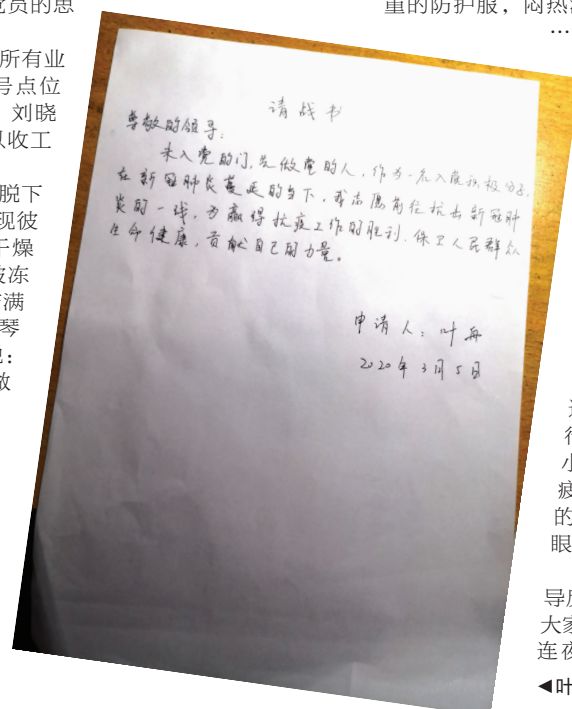 党员的思
所有业
号点位
刘晓
队收工
脱下
现彼
干燥
被冻
满
琴
:
敬
重的防护服，闷热
…
请战书
尊敬的领导：
未入党的门，先做党的人，作为一名入党积极分子，
在新冠肺炎蔓延的当下，我志愿前往抗击新冠肺
炎的一线，为赢得抗疫工作的胜利、保卫人民群众
生命健康，贡献自己的力量。
申请人：叶舟
2020年3月5日
小
疲
的
眼
导
大家
连夜
◀叶